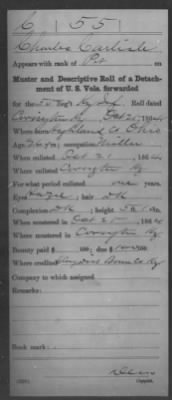 C 55
Charles Carlisle
Appears with rank of Pvt on
Muster and Descriptive Roll of a Detachment
of U. S. Vols. forwarded
for the 55 Reg't Ky Inf. Roll dated
Covington Ky Oct 25, 1864
Where born Highland Co Ohio
Age 26 y'rs; occupation Miller
When enlisted Oct 21, 1864
Where enlisted Covington Ky
For what period enlisted one years.
Eyes Hazel; hair Dk
Complexion Dk; height 5 ft. in.
When mustered in Oct 21, 1864
Where mustered in Covington Ky
Bounty paid $ 100; due $ 100
Where credited Boone Co Ky
Company to which assigned
Remarks:
Book mark:
Copyist.